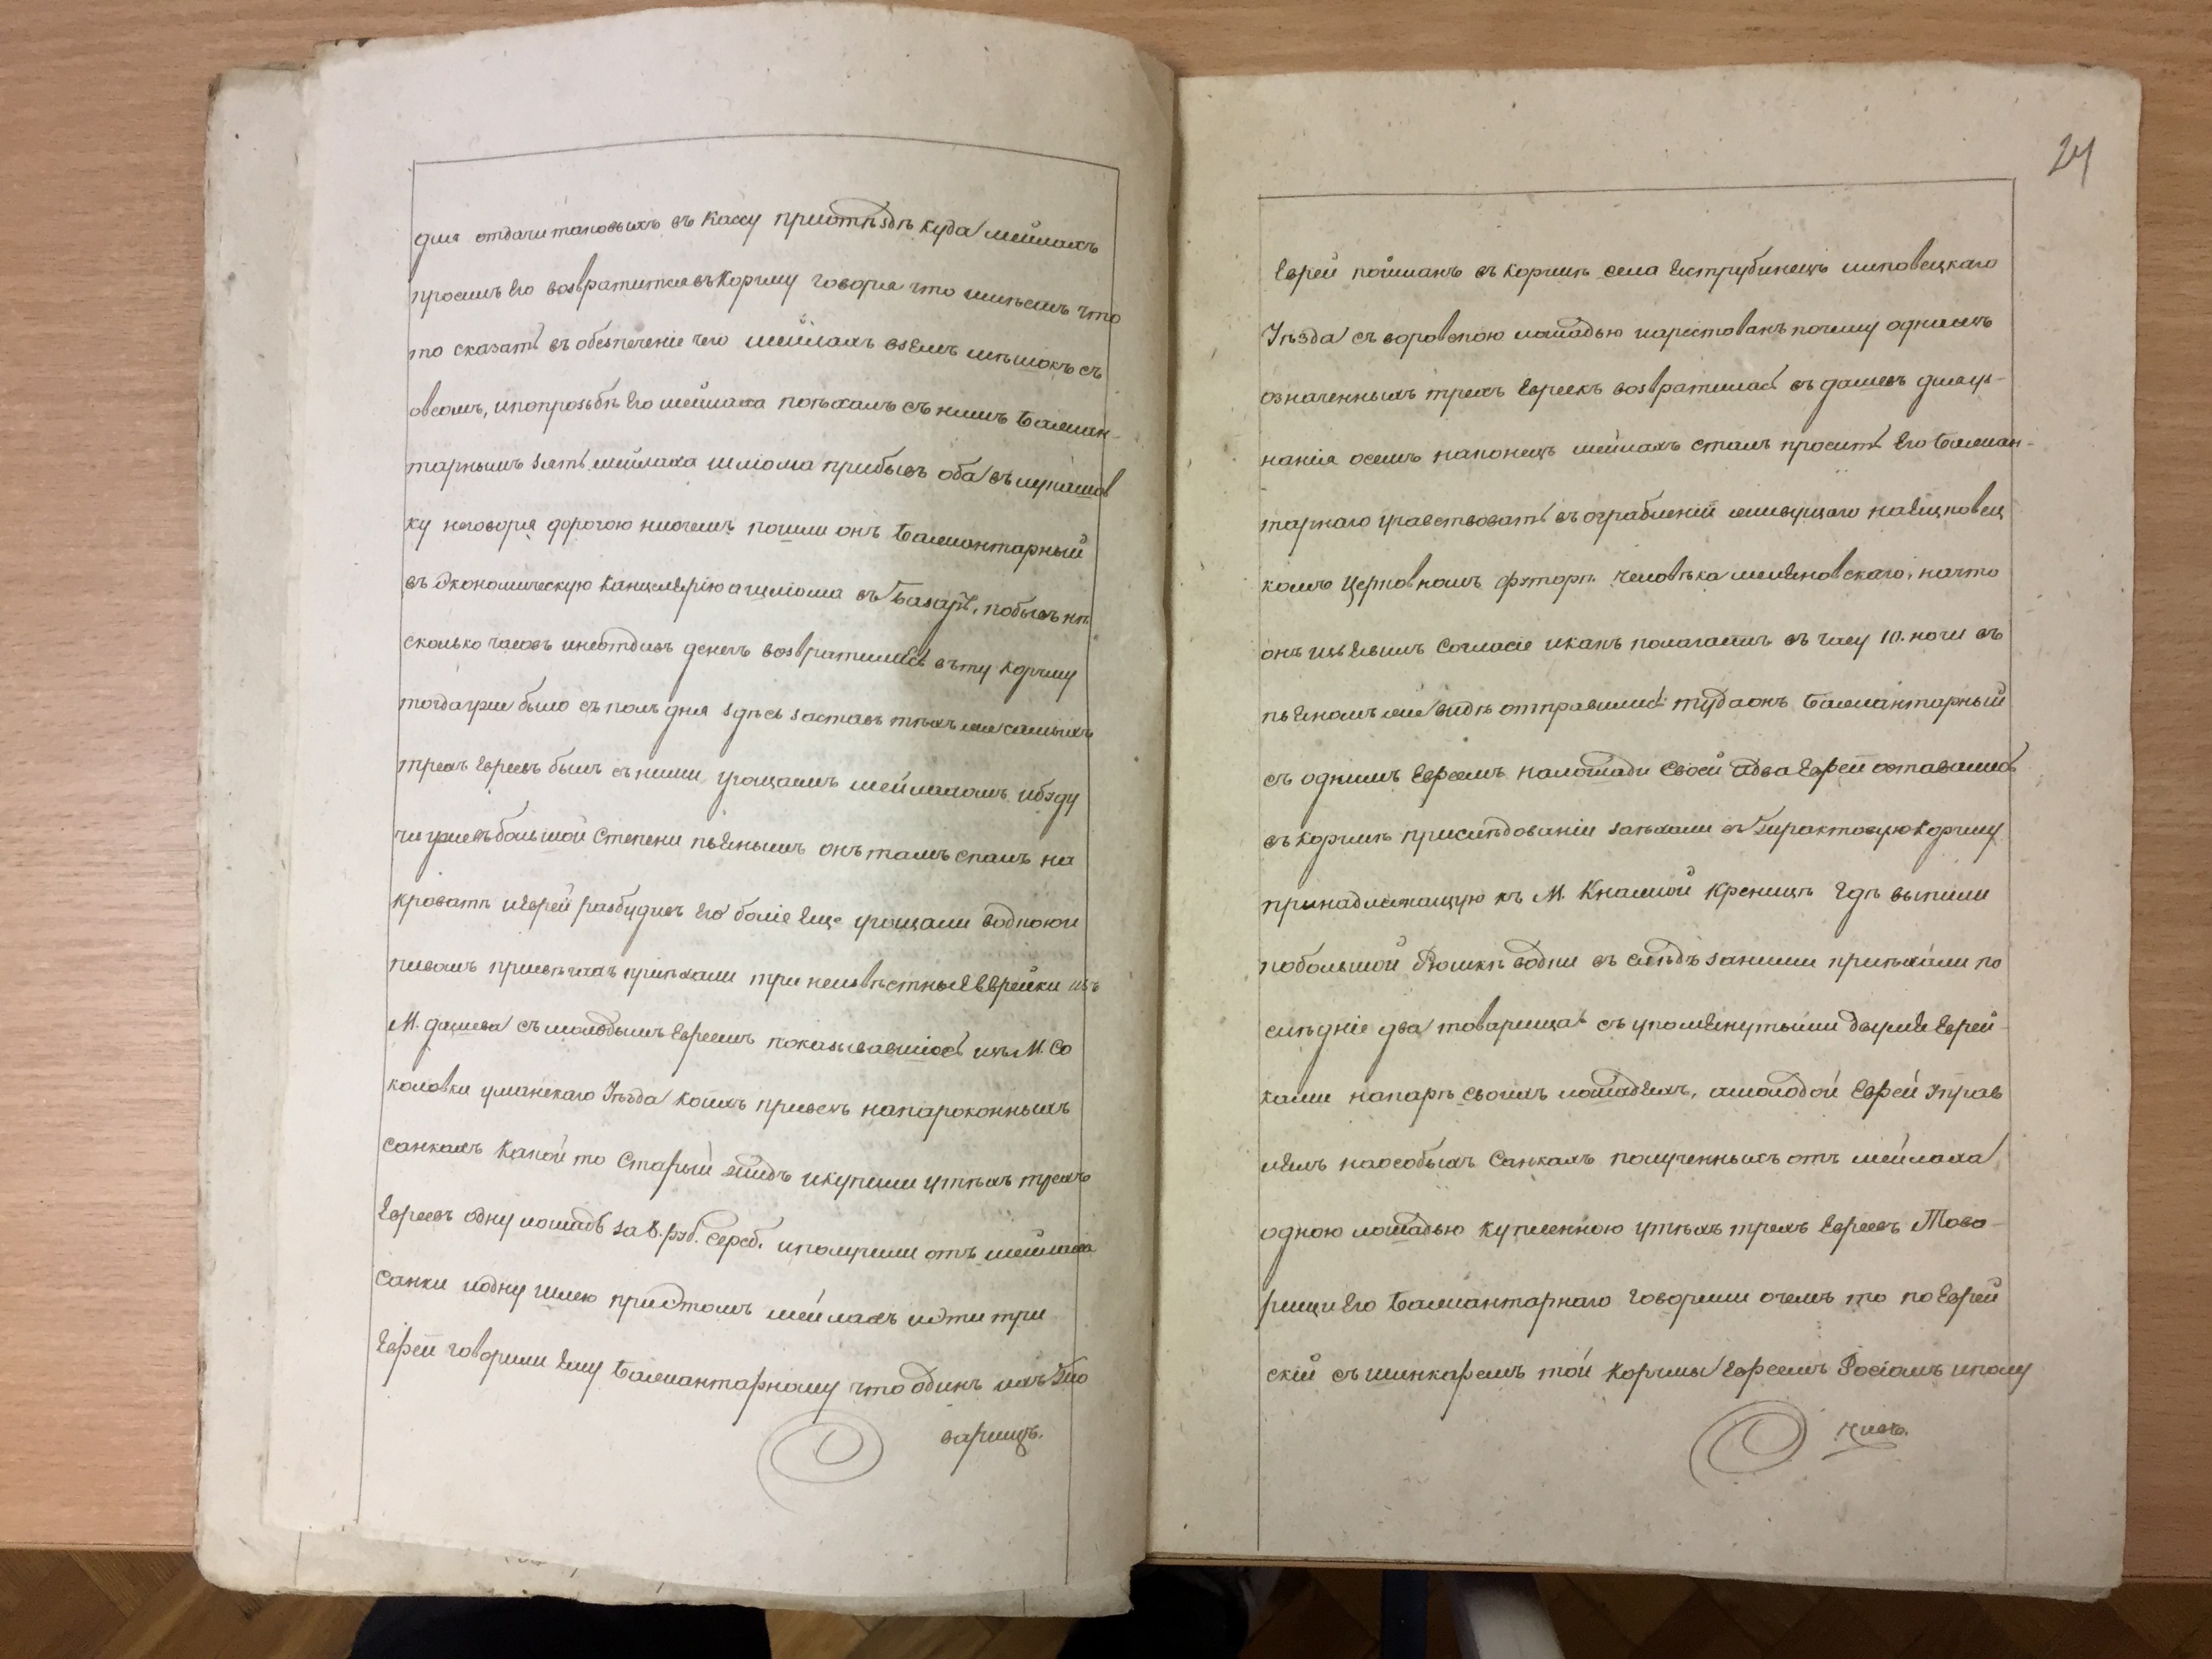 для отдачи таковыхъ въ кассу при отъѣздѣ куда Мейлахъ
просилъ Его возвратится въ корчму говоря что имѣетъ что
то сказать въ обезпеченіе чего Мейлахъ взялъ мѣшокъ съ
овсомъ, и по прозьбѣ Его Мейлаха поѣхалъ съ нимъ Балман-
тарнымъ зять Мейлаха Шліома прибывъ оба въ Лукашов
ку неговоря дорогою ниочемъ пошли онъ Балмантарный
въ Экономическую Канцелярію а Шліома въ Базаръ, побывъ нѣ
сколько часовъ и неотдавъ денегъ возвратились въ ту корчму
тогда уже было съ полъ дня здѣсь заставъ тѣхъ же самыхъ
трехъ Евреевъ былъ съ ними угощаемъ Мейлахомъ и буду
чи уже въ большой Степени пьянымъ онъ тамъ спалъ на
кроватѣ и Евреи разбудивъ Его боліе Еще угощали водкою и
пивомъ при свѣчахъ пріѣхали три неизвѣстныя Еврейки изъ
М. Дашева съ молодымъ Евреемъ показывавшимсь изъ М. Со
коловки Уманскаго Уѣзда коихъ привезъ на пароконныхъ
Санкахъ какой то Старый жидъ и купили у тѣхъ трехъ
Евреевъ одну лошадь за 8. руб. Сереб. и получили отъ Мейлаха
санки и одну шлею при этомъ Мейлахъ и эти три
Евреи говорили Ему Балмантарному что одинъ ихъ То
варищъ.
24
Еврей пойманъ въ корчмѣ села Яструбинецъ Липовецкаго
Уѣзда съ воровскою лошадью и арестованъ почему одна изъ
означенныхъ трехъ Евреекъ возвратилась въ Дашевъ для уз-
нанія о семъ наконецъ Мейлахъ сталъ просить Его Балман-
тарнаго участвовать въ ограбленіи живущаго на Яцковец
комъ Церковномъ футорѣ человѣка Меляновскаго, на что
онъ изъявилъ Согласіе и какъ полагаетъ въ часу 10. ночи въ
пьяномъ же видѣ отправились туда онъ Балмантарный
съ однимъ Евреемъ на лошади Своей а два Евреи оставались
въ корчмѣ при слѣдованіи заѣхали въ Трактовую корчму
принадлежащую къ М. Княжой Креницѣ гдѣ выпили
по большой Рюмкѣ водки въ слѣдъ за ними пріѣхали по
слѣдніе два товарища съ упомянутыми двумя Еврей-
ками на парѣ своихъ лошадяхъ, а молодой Еврей управ
лялъ на особыхъ Санкахъ полученныхъ отъ Мейлаха
одною лошадью купленною у тѣхъ трехъ Евреевъ Това-
рищи Его Балмантарнаго говорили о чемъ то по Еврей
скій съ шинкаремъ той корчмы Евреемъ Росіомъ и полу
чивъ.